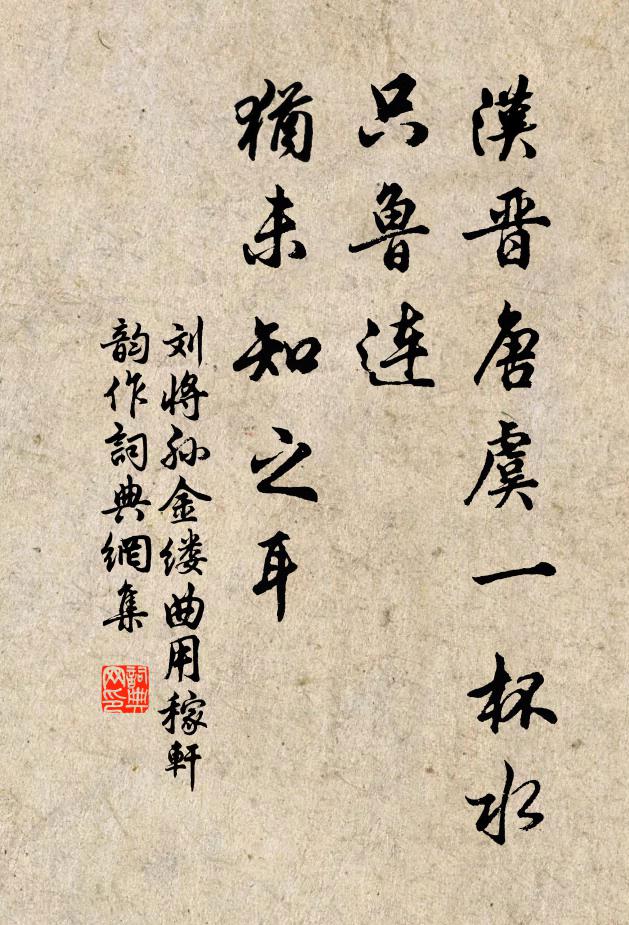 漢晋唐虞一杯水
只魯連
猶未知之耳
刘將孙金缕曲用稼軒
韵作詞典網集
詞典
网印